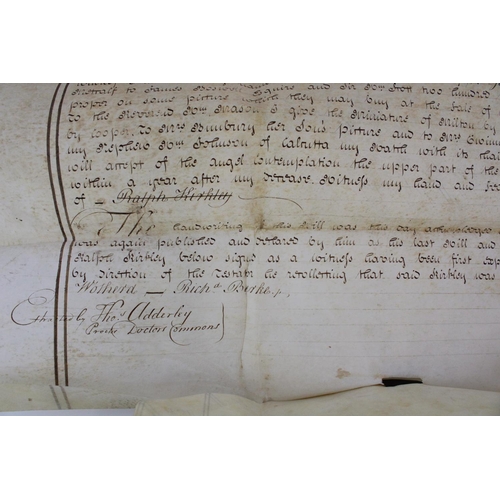 Entreat to James Boswell Esquire and Sir Wm Scott two hundred
proper on some picture which they may buy at the Sale of
To the Reverend Wm Mason I give the Miniature of Milton by
by Cooper, To Mrs Bunbury her Son's picture and to Mrs Gwinn
my Nephew Wm Johnson of Calcutta my Watch with it's
will accept of the angel Contemplation the upper part of the
within a year after my decease. Witness my Hand and
of — Ralph Kirkley
The handwriting of this Will was this day acknowledged
was again published and declared by him as his last Will and
Ralph Kirkley below signs as a witness having been first
by direction of the Testator he recollecting that said Kirkley was
Wotherd — Richd Burke jr.
Extracted by Thos Adderley
Proctr Doctors Commons